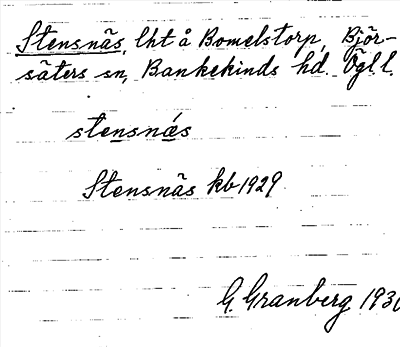 Stensnäs, lht å Bomelstorp, Björ-
säters sn, Bankekinds hd. Ögl. l.
stensnäs
Stensnäs kb 1929
G. Granberg 1930